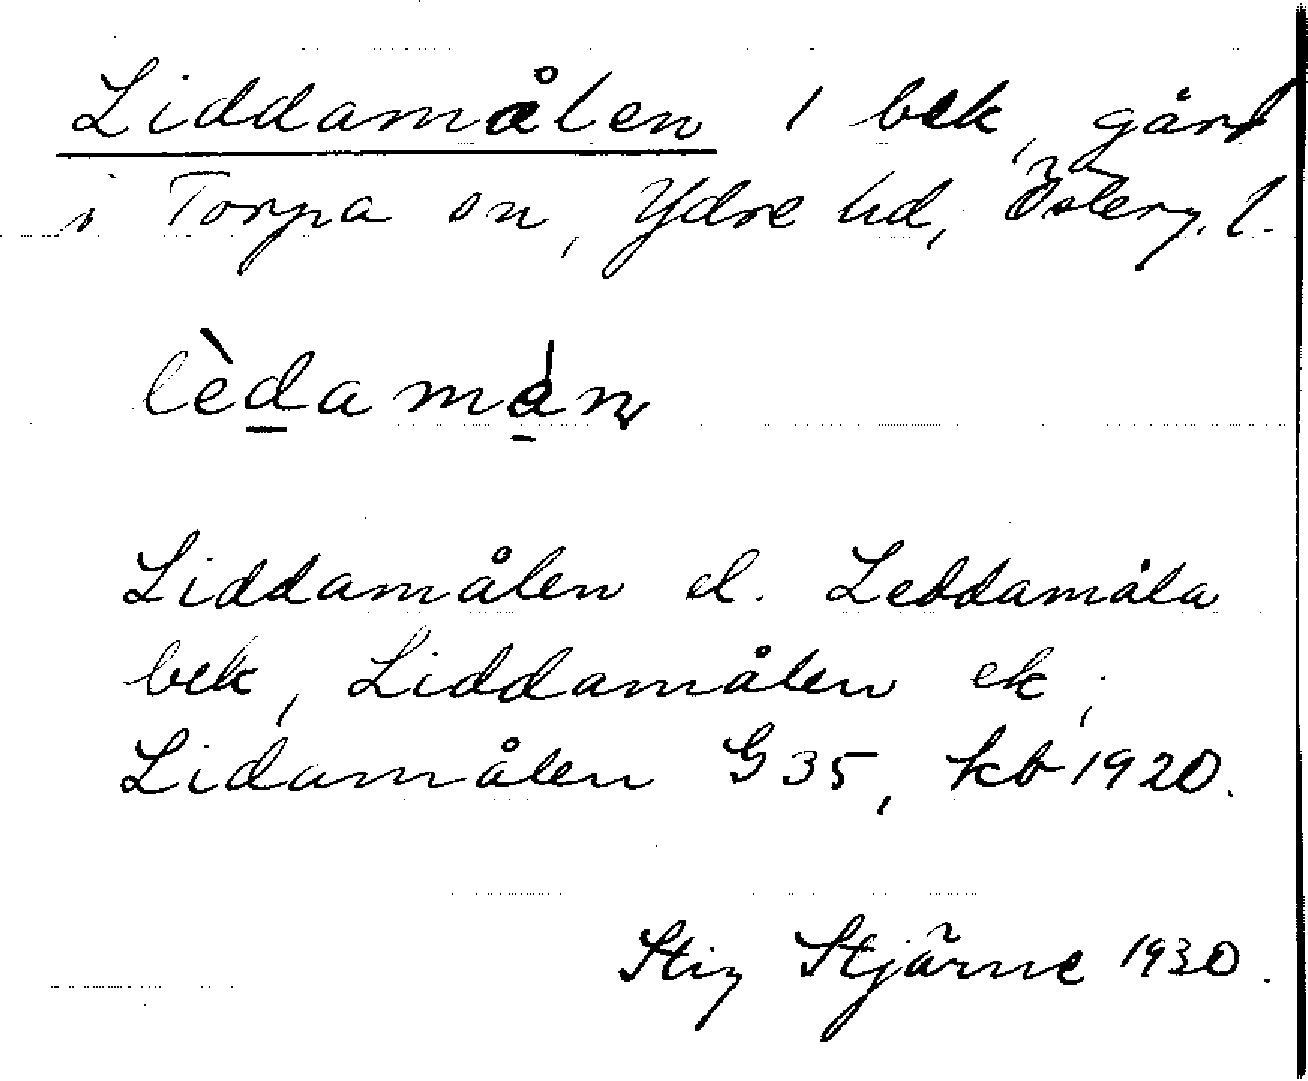 Liddamålen 1 bek, gård
i Torpa sn, Ydre hd, Österg. l.
lèdamån
Liddamålen el. Leddamåla
bek, Liddamålen ek,
Lidamålen G 35, kb 1920.
Stig Stjärne 1930.